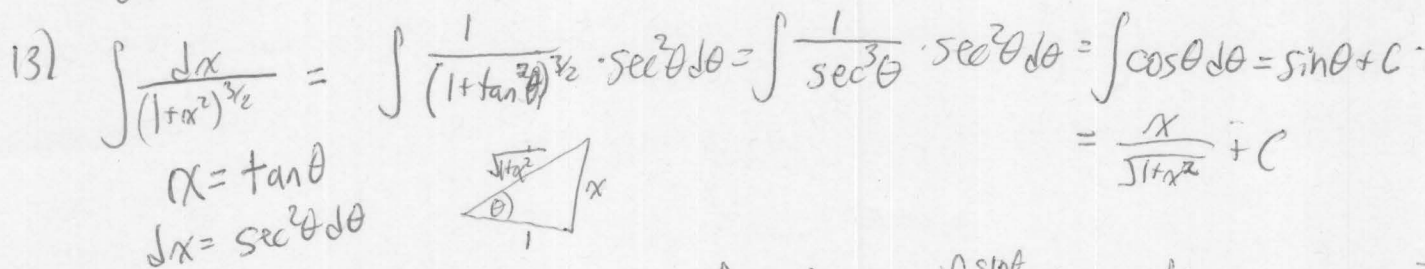 13) ∫ dx/(1+x²)^(3/2) = ∫ 1/(1+tan²θ)^(3/2) · sec²θ dθ = ∫ 1/sec³θ · sec²θ dθ = ∫ cosθ dθ = sinθ + C
= x/√(1+x²) + C
x = tanθ
dx = sec²θ dθ
√(1+x²)
x
θ
1